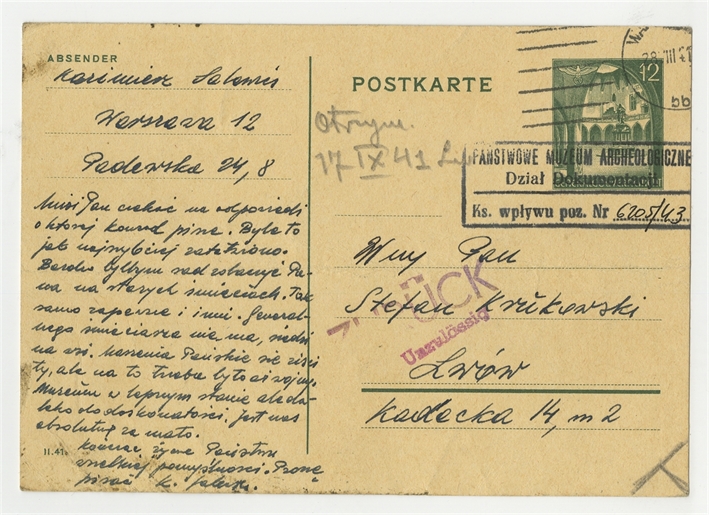 ABSENDER
Kazimierz Salewicz
Warszawa 12
Padewska 24, 8
Musi Pan czekać na odpowiedź
o której Konrad pisze. Byle to
jak najszybciej załatwiono.
Bardzo byłbym rad zobaczyć Pa-
na na starych śmieciach. Tak
samo zapewne i inni. General-
nego śmieciarza nie ma, siedzi
na wsi. Marzenia Pańskie się ziści
ty, ale na to trzeba było aż wojny.
Muzeum w lepszym stanie ale da-
leko do doskonałości. Jest nas
absolutnie za mało.
Kończąc życzę Państwu
wszelkiej pomyślności. Proszę
pisać K. Salew.
II.41.
POSTKARTE
12
VIII 41
Otrzym.
17 IX 41
PAŃSTWOWE MUZEUM ARCHEOLOGICZNE
Dział Dokumentacji
Ks. wpływu poz. Nr 6205/43
ZURÜCK
Unzulässig
Wny Pan
Stefan Krukowski
Lwów
Kadecka 14, m 2